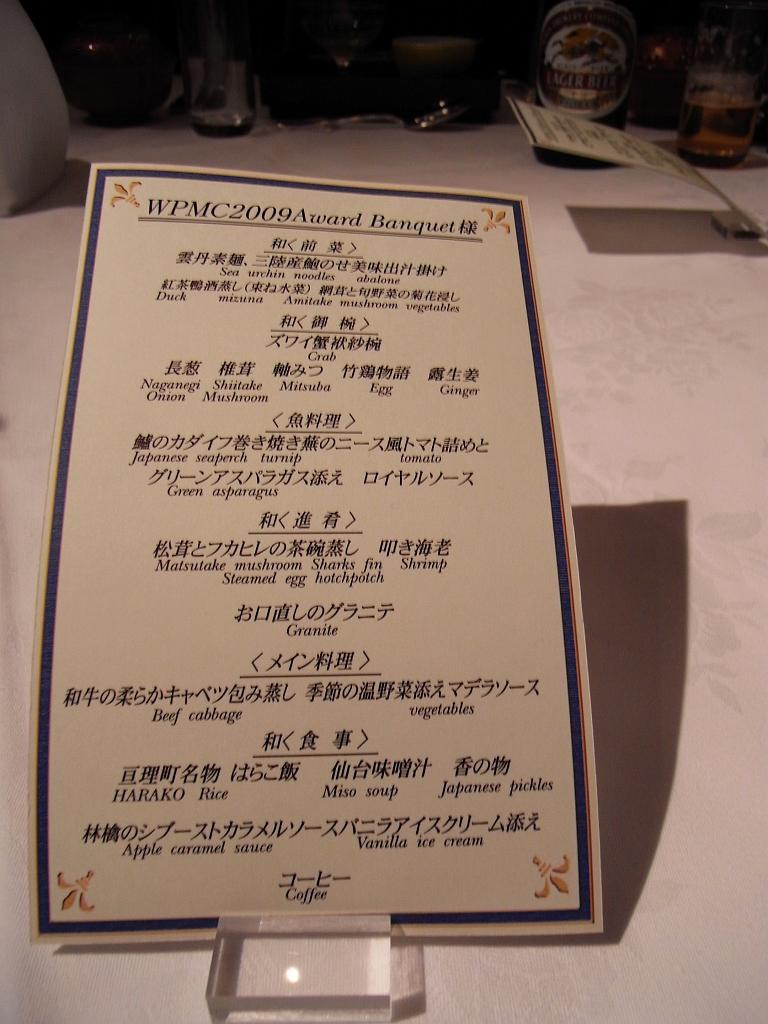 WPMC2009Award Banquet様
和〈前 菜〉
雲丹素麺、三陸産鮑のせ美味出汁掛け
Sea urchin noodles abalone
紅茶鴨酒蒸し(束ね水菜) 網茸と旬野菜の菊花浸し
Duck mizuna Amitake mushroom vegetables
和〈御 椀〉
ズワイ蟹袱紗椀
Crab
長葱 椎茸 軸みつ 竹鶏物語 露生姜
Naganegi Shiitake Mitsuba Egg Ginger
Onion Mushroom
〈魚料理〉
鱸のカダイフ巻き焼き蕪のニース風トマト詰めと
Japanese seaperch turnip tomato
グリーンアスパラガス添え ロイヤルソース
Green asparagus
和〈進 肴〉
松茸とフカヒレの茶碗蒸し 叩き海老
Matsutake mushroom Sharks fin Shrimp
Steamed egg hotchpotch
お口直しのグラニテ
Granite
〈メイン料理〉
和牛の柔らかキャベツ包み蒸し 季節の温野菜添えマデラソース
Beef cabbage vegetables
和〈食 事〉
亘理町名物 はらこ飯 仙台味噌汁 香の物
HARAKO Rice Miso soup Japanese pickles
林檎のシブーストカラメルソースバニラアイスクリーム添え
Apple caramel sauce Vanilla ice cream
コーヒー
Coffee
LAGER BEER